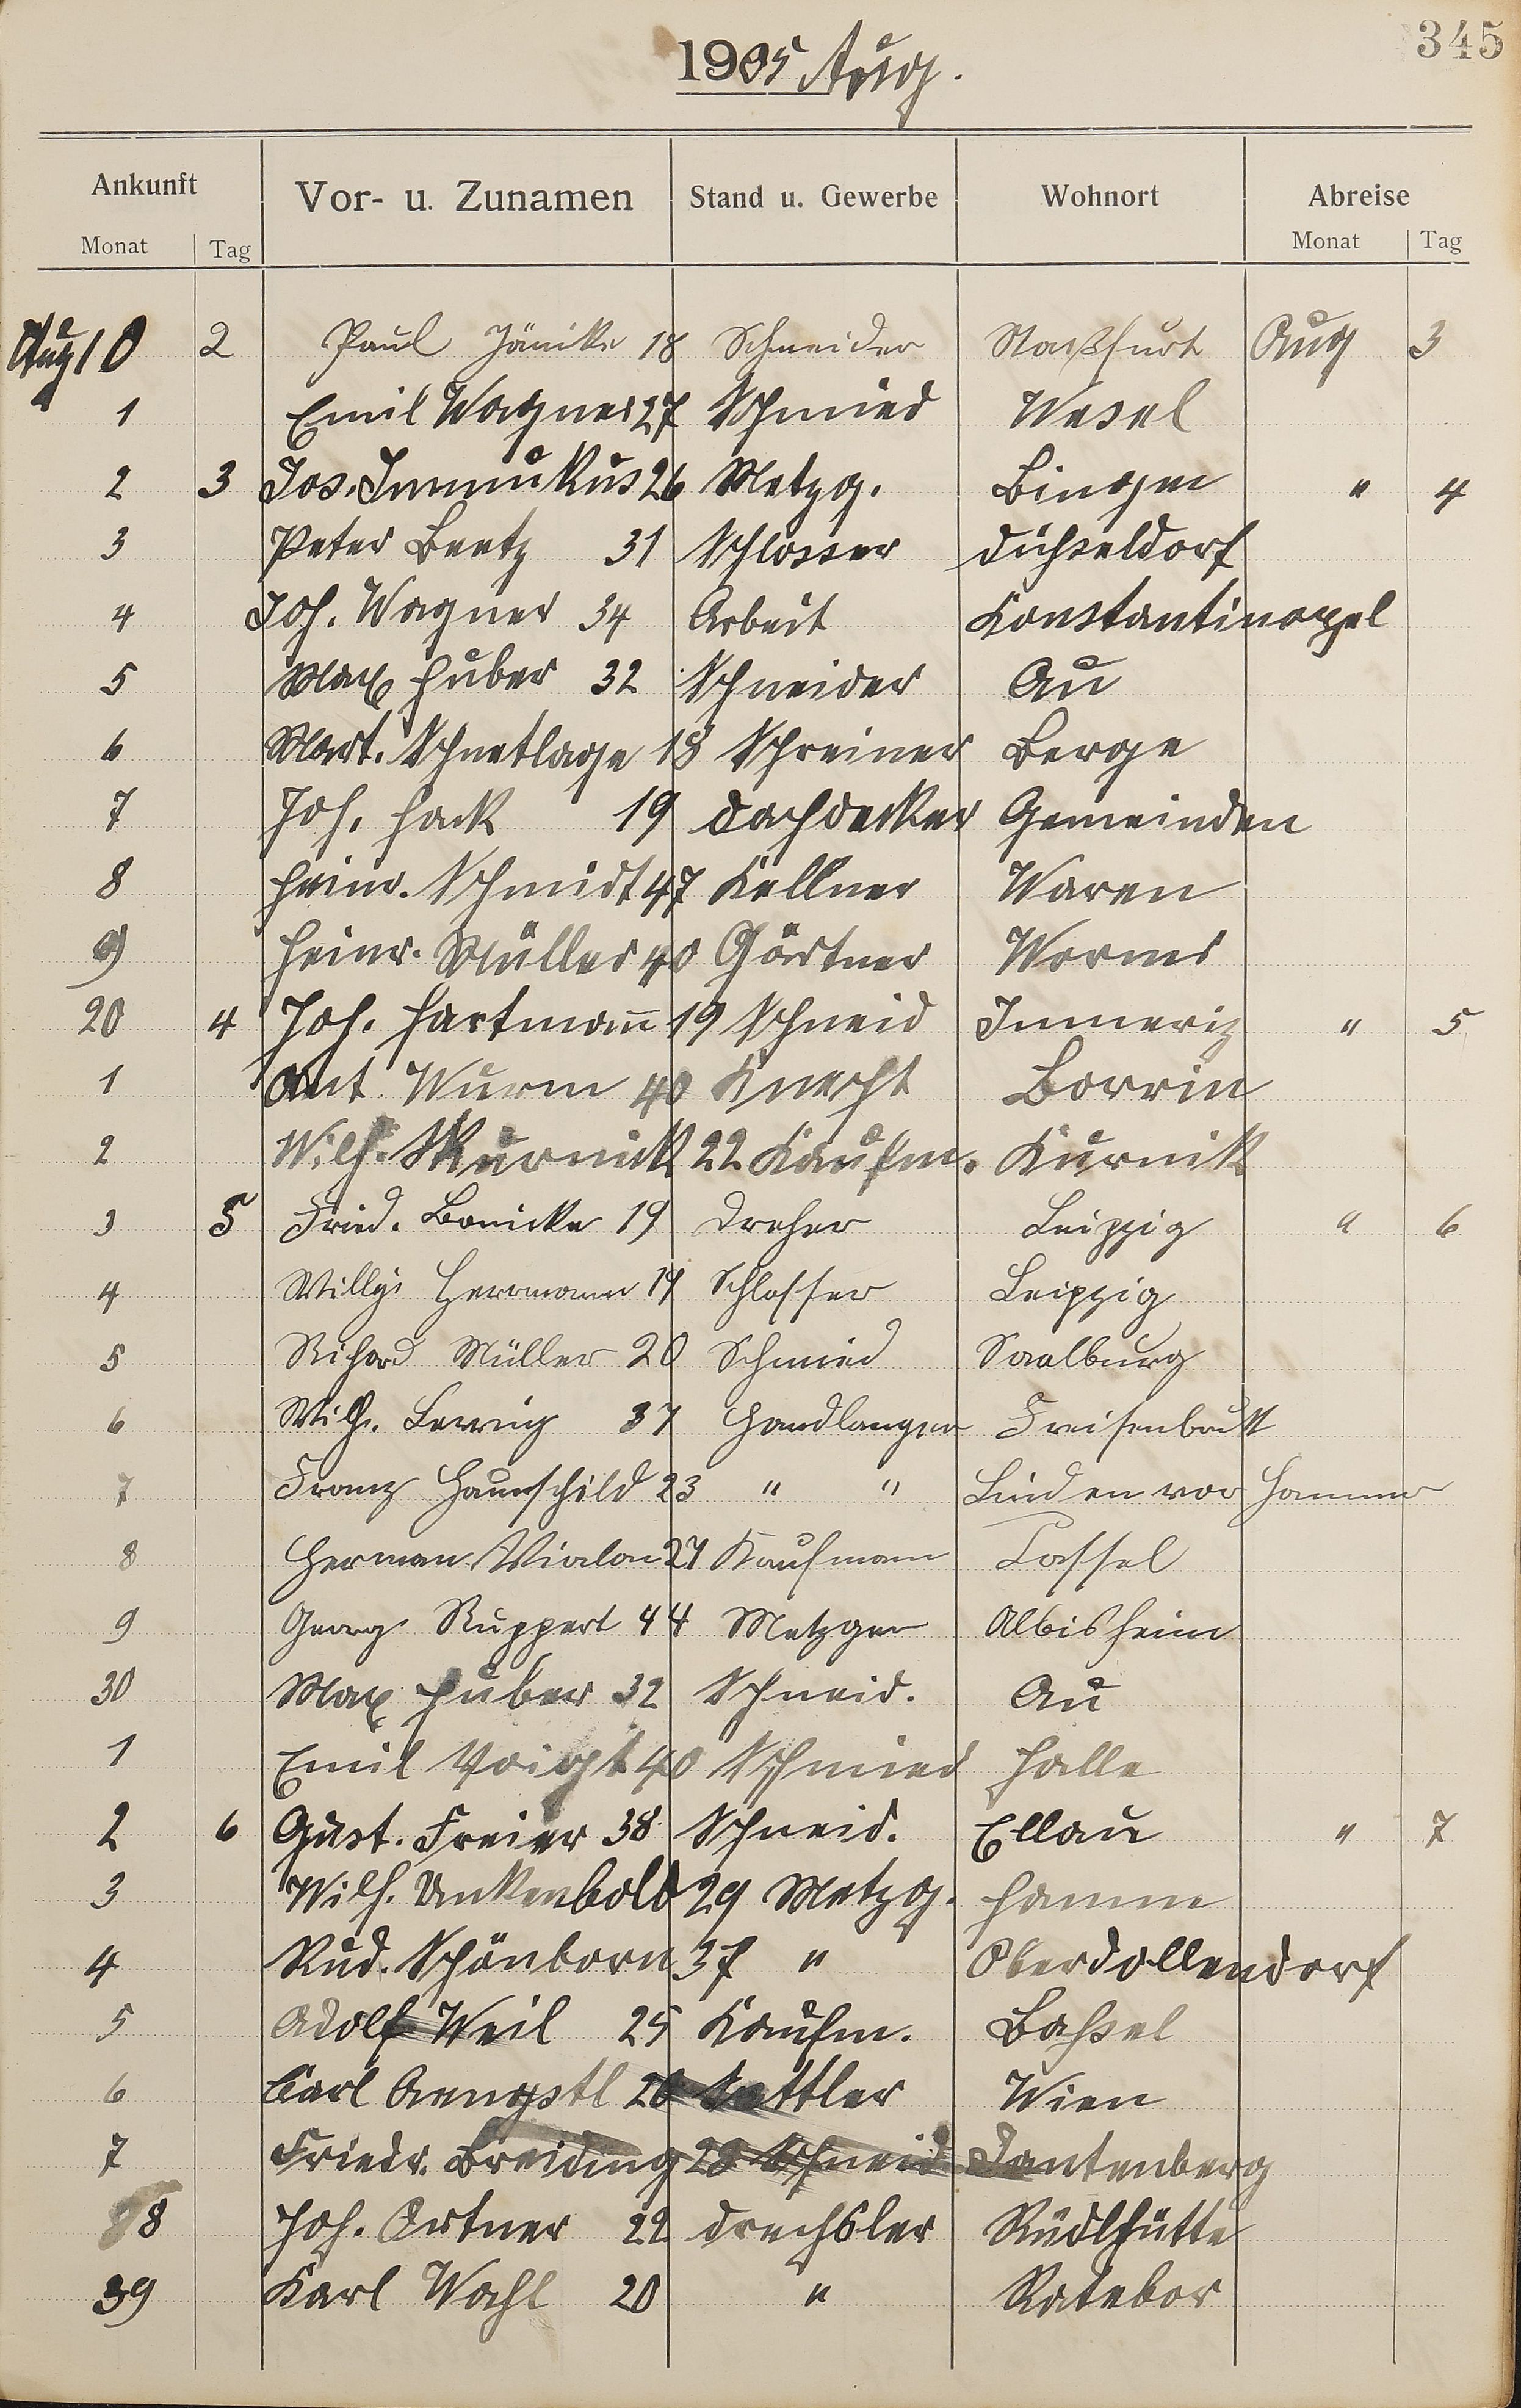 345
1905 Aug.
Ankunft Vor- u. Zunamen Stand u. Gewerbe Wohnort Abreise
Monat Tag Monat Tag
Aug 10 2 Paul Jänike 18 Schneider Staßfurt Aug 3
1 Emil Wagner 27 Schmied Wesel
2 3 Jos. 26 Metzg. Bingen " 4
3 Peter Beetz 31 Schlosser Düsseldorf
4 Joh. Wagner 34 Arbeit Konstantinopel
5 Max Huber 32 Schneider Au
6 Mart. Schnetlage 18 Schreiner Berge
7 Joh. Hack 19 Dachdecker Gemeinden
8 Heinr. Schmidt 47 Kellner Waren
9 Heinr. Müller 40 Gärtner Worms
20 4 Joh. Hartmann 19 Schneid Immeriz " 5
1 Ant Wurm 40 Knecht Borrin
2 Wilh. 22 Kaufm. Kurnik
3 5 Fried. Bönicke 19 Dreher Leipzig " 6
4 Willy Herrmann 19 Schlosser Leipzig
5 Richard Müller 20 Schmied Saalburg
6 Wilh. 37 Handlanger
7 Franz Haunschild 23 " " Linden vor Hannover
8 Herman Vialon 27 Kaufmann Cassel
9 Georg Ruppert 44 Metzger Albisheim
30 Max Huber 32 Schneid. Au
1 Emil Voigt 40 Schmied Halle
2 6 Gust. Freier 38 Schneid. Ellau " 7
3 Wilh. Unkenbold 29 Metzg. Hamm
4 Rud. Schönborn 37 " Oberdollendorf
5 Adolf Weil 25 Kaufm. Bassel
6 Carl Aengstl 28 Sattler Wien
7 Friedr. Breiding 28 Schneid Dautenberg
8 Joh. Ortner 22 Drechsler Rüdlhütte
39 Karl Wahl 20 " Ratebor